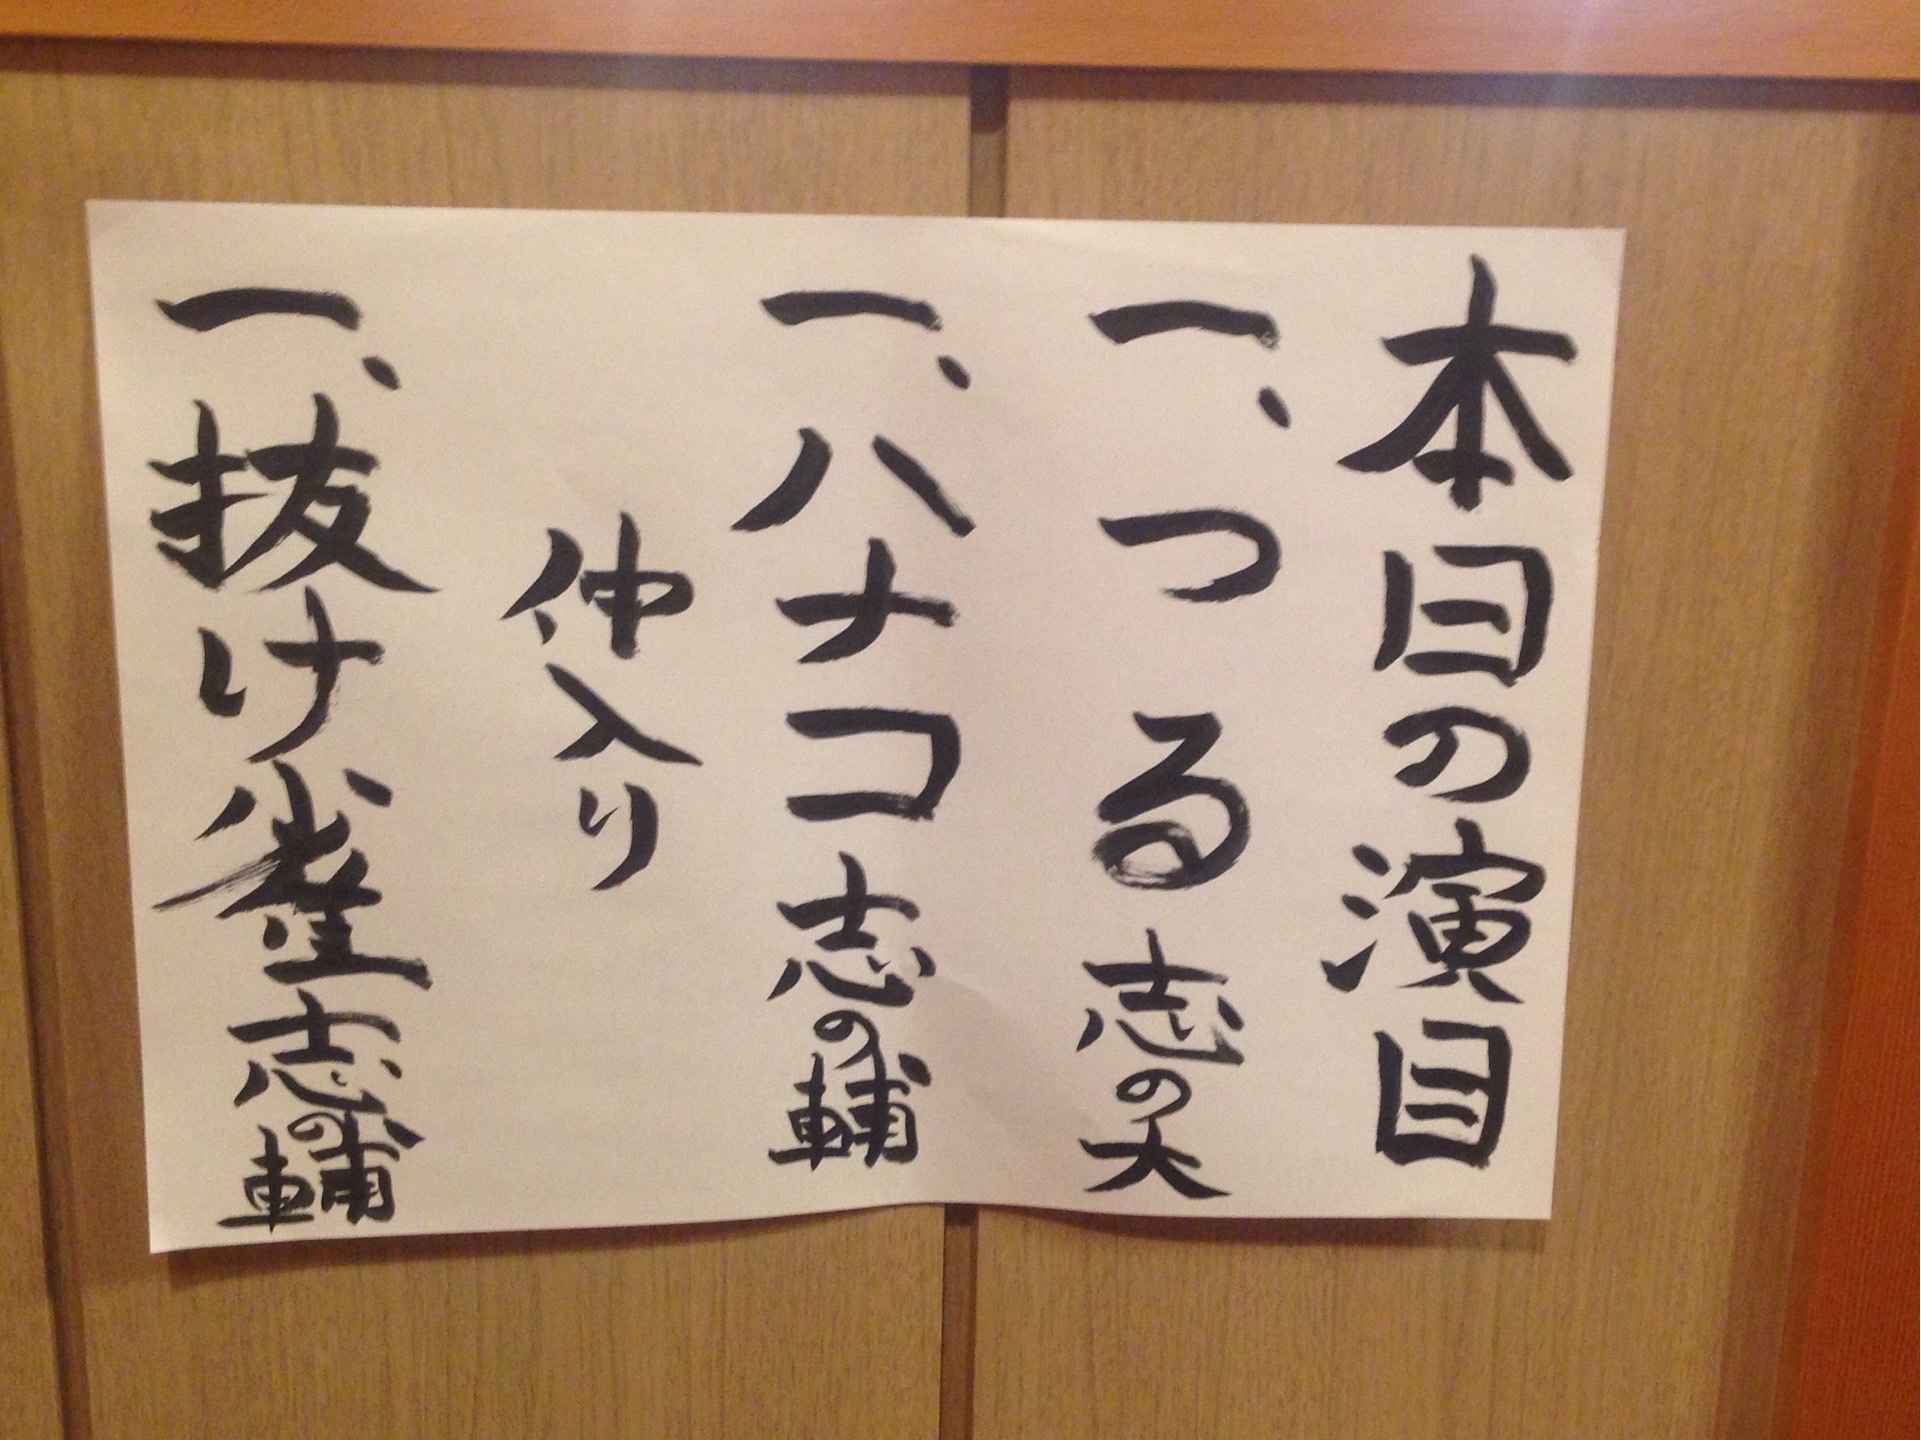 本日の演目
一、つる 志の大
一、ハナコ 志の輔
仲入り
一、抜け雀 志の輔